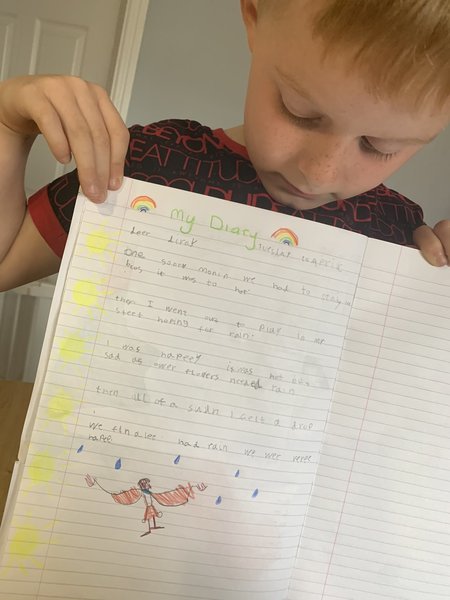 BEYON
EAT TITUD
My Diary
deer
one mornin we had to stay in
it was to hot
then I went out to play in
street hoping for rain.
I was happeey it was hot but
sad as ower flowers needed rain
then all of a sudn I felt a drop
we finalee had rain we wer veree
happe